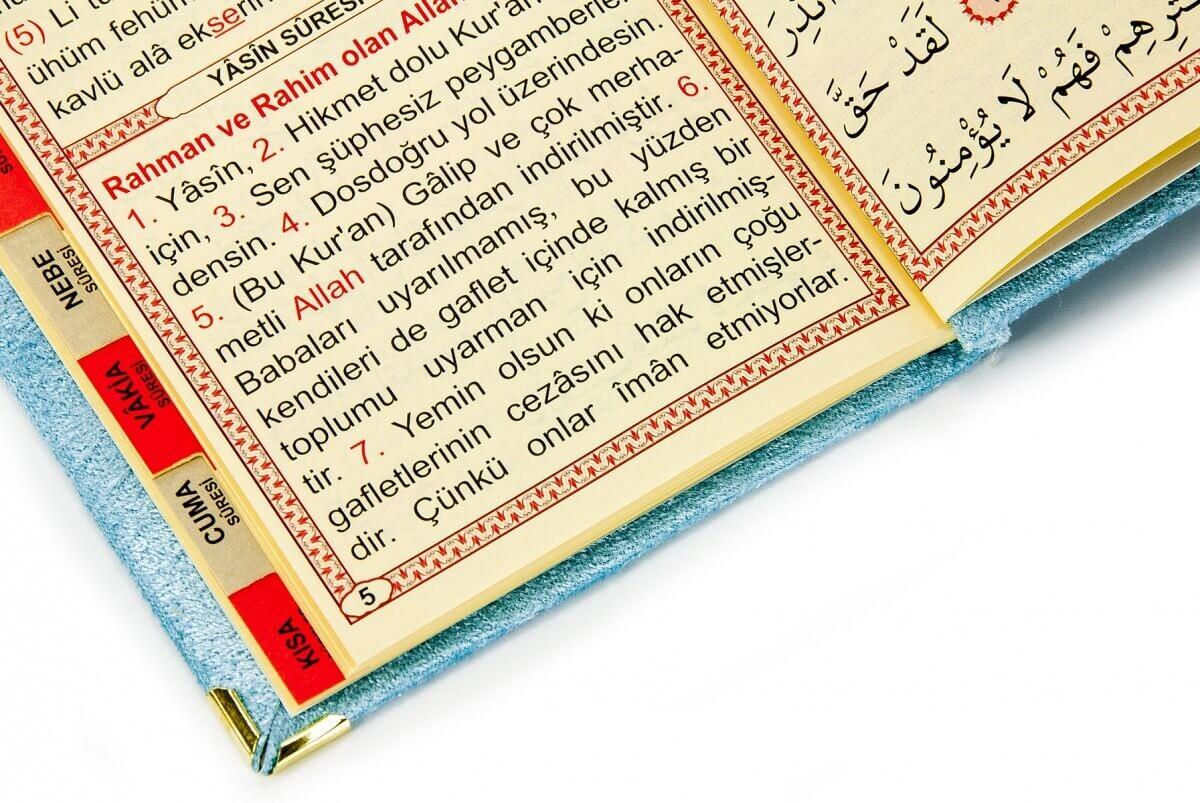 (5) Li
ühüm fehüm
kavlü alâ ekserin
YÂSÎN SÛRESİ
Rahman ve Rahim olan Allah
1. Yâsîn, 2. Hikmet dolu Kur'an
için, 3. Sen şüphesiz peygamberle
densin. 4. Dosdoğru yol üzerindesin.
5. (Bu Kur'an) Gâlip ve çok merha-
metli Allah tarafından indirilmiştir. 6.
Babaları uyarılmamış, bu yüzden
kendileri de gaflet içinde kalmış bir
toplumu uyarman için indirilmiş-
tir. 7. Yemin olsun ki onların çoğu
gafletlerinin cezâsını hak etmişler-
dir. Çünkü onlar îmân etmiyorlar.
5
NEBE
SÛRESİ
VÂKIA
SÛRESİ
CUMA
SÛRESİ
KISA
لَقَدْ حَقَّ
فَهُمْ لَا يُؤْمِنُونَ